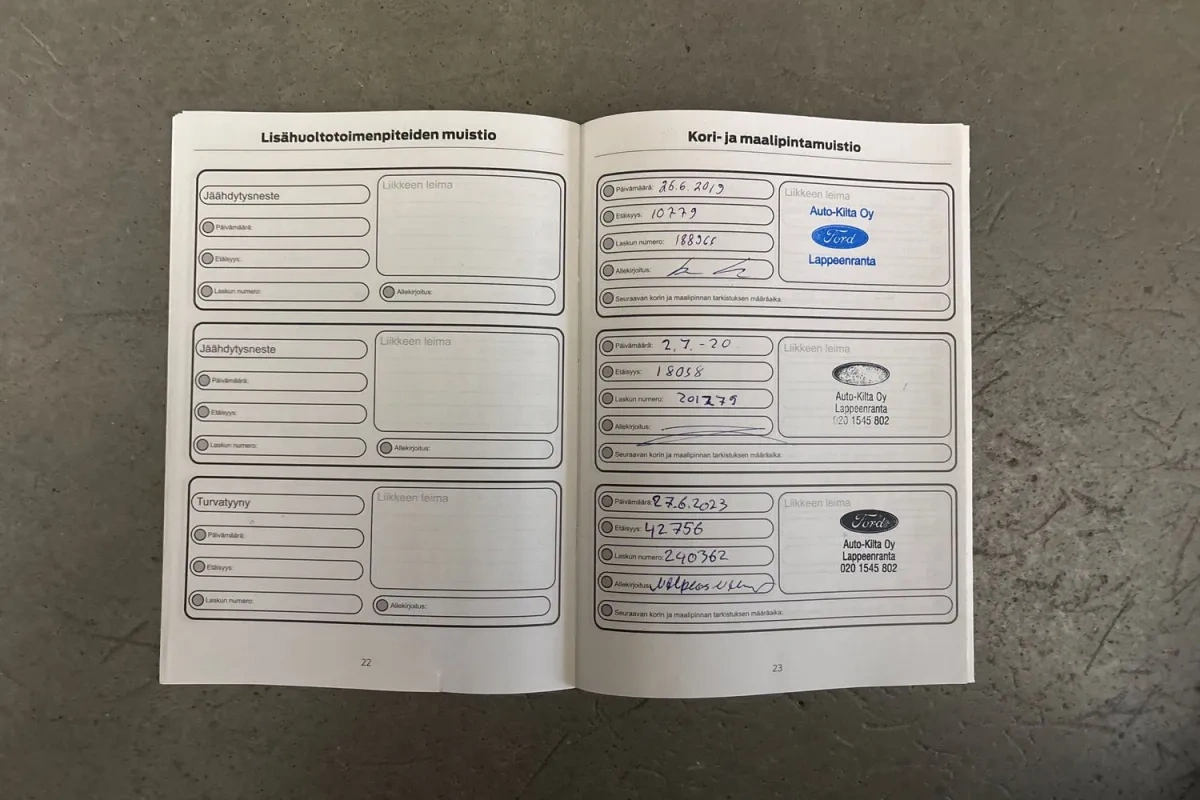 Lisähuoltotoimenpiteiden muistio
Jäähdytysneste
Liikkeen leima
Päivämäärä:
Etäisyys:
Laskun numero:
Allekirjoitus:
Jäähdytysneste
Liikkeen leima
Päivämäärä:
Etäisyys:
Laskun numero:
Allekirjoitus:
Turvatyyny
Liikkeen leima
Päivämäärä:
Etäisyys:
Laskun numero:
Allekirjoitus:
22
Kori- ja maalipintamuistio
Päivämäärä: 26.6.2019
Etäisyys: 10779
Laskun numero:
Allekirjoitus:
Liikkeen leima
Auto-Kilta Oy
Ford
Lappeenranta
Seuraavan korin ja maalipinnan tarkistuksen määräaika:
Päivämäärä: 2.7.-20
Etäisyys: 18038
Laskun numero: 201279
Allekirjoitus:
Liikkeen leima
Auto-Kilta Oy
Lappeenranta
020 1545 802
Seuraavan korin ja maalipinnan tarkistuksen määräaika:
Päivämäärä: 27.6.2023
Etäisyys: 42756
Laskun numero: 240362
Allekirjoitus:
Liikkeen leima
Ford
Auto-Kilta Oy
Lappeenranta
020 1545 802
Seuraavan korin ja maalipinnan tarkistuksen määräaika:
23